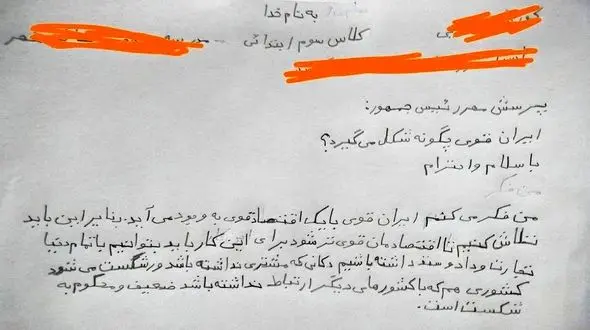 به نام خدا
کلاس سوم ابتدائی
پرسش مهر رئیس جمهور:
ایران قوی چگونه شکل می گیرد؟
با سلام و احترام
من فکر
من فکر می کنم ایران قوی با یک اقتصاد قوی به وجود می آید. بنابراین باید
تلاش کنیم تا اقتصادمان قوی تر شود برای این کار باید بتوانیم با تمام دنیا
تجارت و داد و ستد داشته باشیم دکانی که مشتری نداشته باشد ورشکست می شود
کشوری هم که با کشورهای دیگر ارتباط نداشته باشد ضعیف و محکوم به
شکست است.